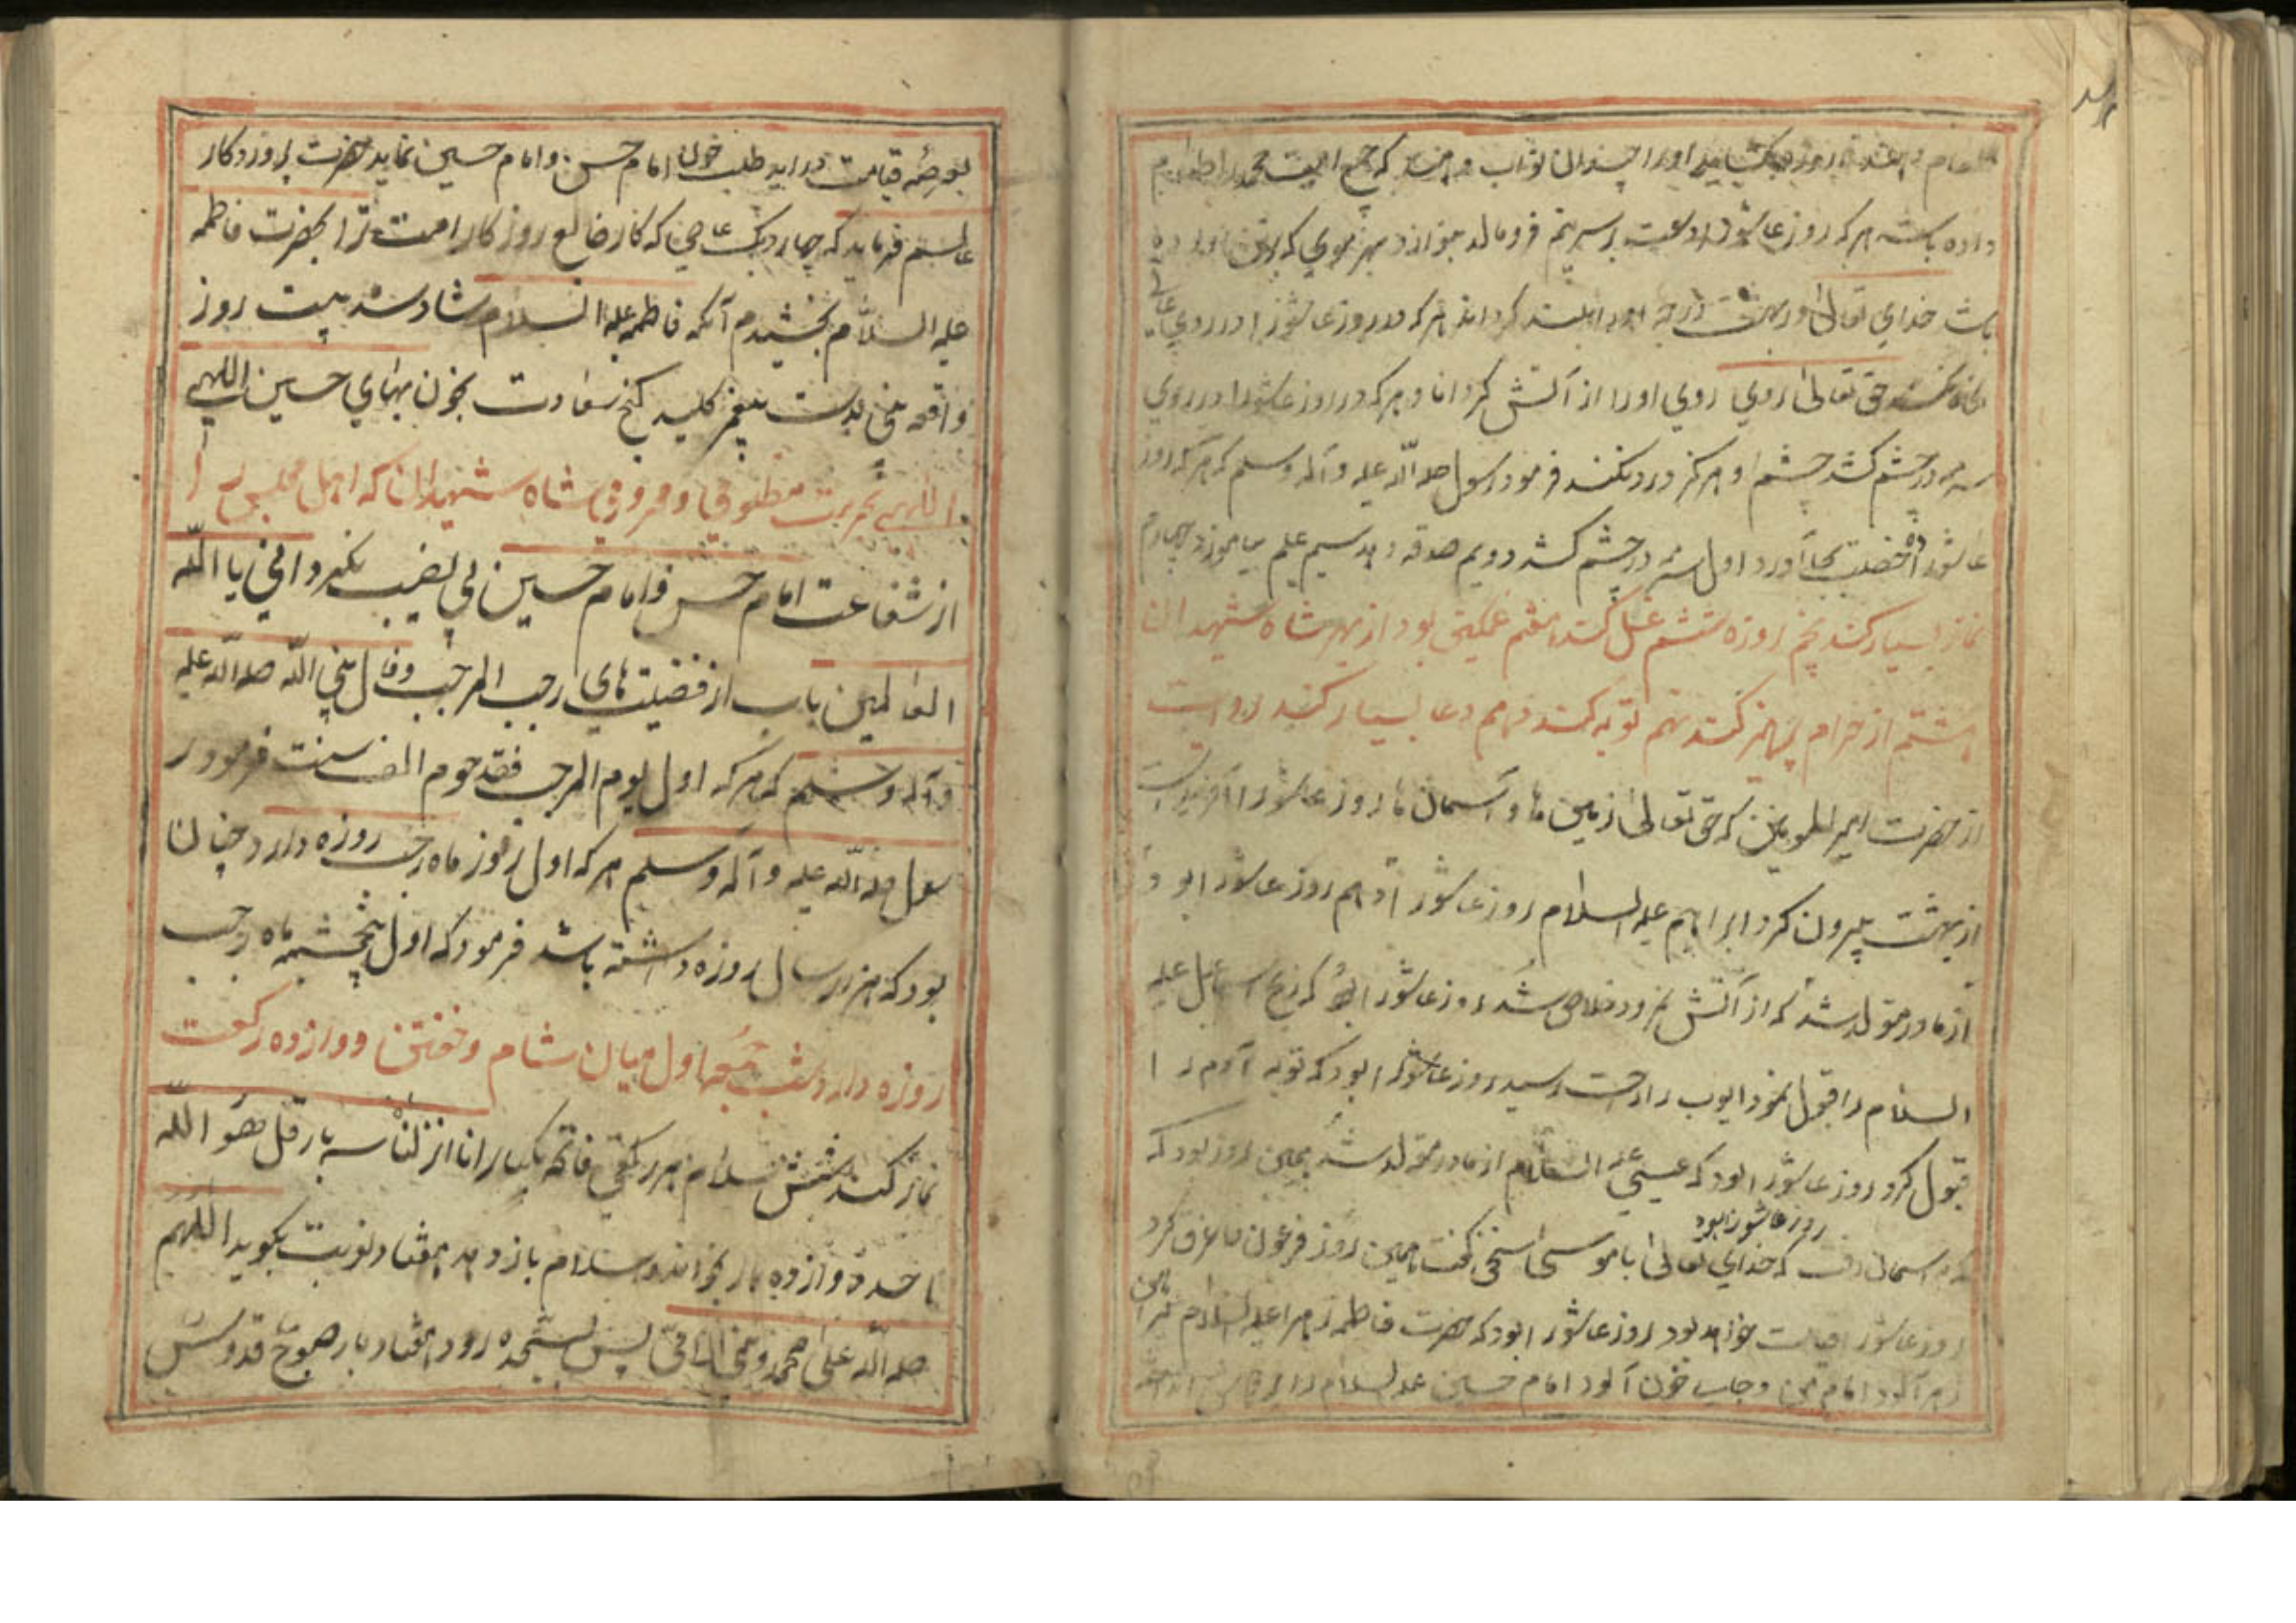 طعام دهد تا روزه بکشاید اورا چندان ثواب دهند که جمیع امت محمد را طعام
داده باشد هر که روز عاشورا دست بر سر یتیم فرو مالد بیوازد بهر موی که بر تن
باشد خدای تعالی در بهشت درجه اورا بلند کرداند هر که در روز عاشورا در روی
نکند حق تعالی روی اورا از آتش کرداند و هر که در روز عاشورا در روی
سرمه در چشم کشد چشم او هرکز درد نکند فرمود رسول صلی الله علیه و آله وسلم که هر که روز
عاشورا ده خصلت بجا آورد اول سرمه در چشم کشد دویم صدقه دهد سیم علم بیاموزد چهارم
نماز بسیار کند پنجم روزه ششم غسل کند هفتم غمکین بود از بهر شاه شهیدان
هشتم از حرام پرهیز کند نهم توبه کند دهم دعا بسیار کند روایت
از حضرت امیر المومنین که حق تعالی زمین ها و آسمان ها روز عاشورا آفرید
از بهشت بیرون کرد ابراهیم علیه السلام روز عاشورا هم روز عاشورا بود
از مادر متولد شد که از آتش نمرود خلاص شد روز عاشورا بود که ذبح اسماعیل علیه
السلام را قبول نمود ایوب را راحت رسید روز عاشورا بود که توبه آدم را
قبول کرد روز عاشورا بود که عیسی علیه السلام از مادر متولد شد همین روز بود که
روز عاشورا بود
به آسمان رفت که خدای تعالی با موسی سخن کفت همین روز فرعون را غرق کرد
روز عاشورا قیامت خواهد بود روز عاشورا بود که حضرت فاطمه زهرا علیه السلام
زهر آلود امام حسن و خون آلود امام حسین علیه السلام را
بعرصه قیامت در اید طلب خون امام حسن و امام حسین نماید حضرت پروردکار
عالم فرماید که چهار دیک عاصی که کار ضایع روزکار امت ترا بحضرت فاطمه
علیه السلام بخشیدم آنکه فاطمه علیه السلام شاد شد بیت روز
واقعه بدست پیغمبر کلید کنج سعادت بخون بهای حسین الهی
الهی بحرمت مظلومی و محرومی شاه شهیدان که اهل مجلس را
از شفاعت امام حسن و امام حسین بی نصیب نکردانی یا الله
العالمین باب از فضیلت های رجب المرجب وقال نبی الله صلی الله علیه
و آله وسلم که هر که اول یوم المرجب فقد صوم الف سنت فرمود ر
سول صلی الله علیه و آله وسلم هر که اول روز ماه رجب روزه دارد چنان
بود که هزار سال روزه داشته باشد فرمود که اول پنجشنبه ماه رجب
روزه دارد شب جمعه اول میان شام و خفتن دوازده رکعت
نماز کند شش سلام بهر رکعتی فاتحه یکبار انا انزلناه سه بار قل هو الله
احد دوازده بار بخواند و سلام باز دهد هفتاد نوبت بکوید اللهم
صلی الله علی محمد نبی الامی پس بسجده رود هفتاد بار سبوح قدوس